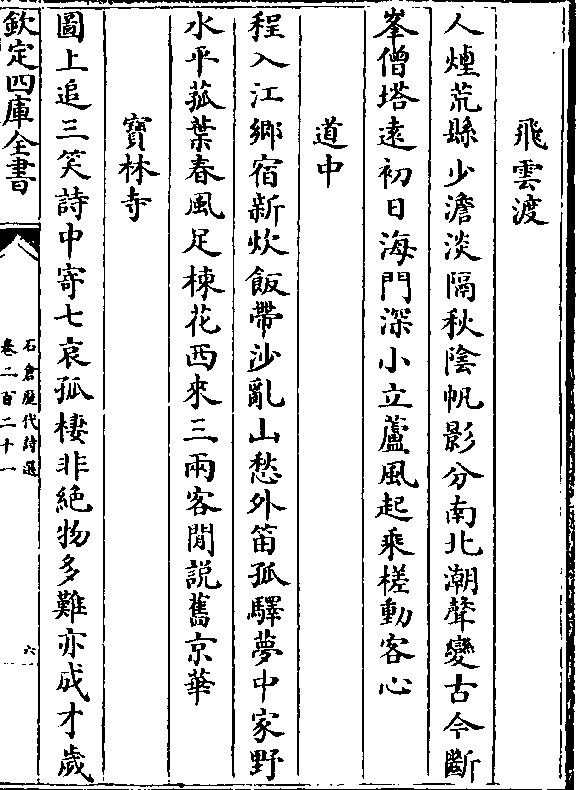 飛雲渡
人煙荒縣少澹淡隔秋陰帆影分南北潮聲變古今斷
峯僧塔遠初日海門深小立蘆風起乘槎動客心
道中
程入江鄉宿新炊飯帶沙亂山愁外笛孤驛夢中家野
水平菰葉春風足楝花西來三兩客閒說舊京華
寶林寺
圖上追三笑詩中寄七哀孤棲非絶物多難亦成才歲
欽定四庫全書
石倉歷代詩選
卷二百二十一
六